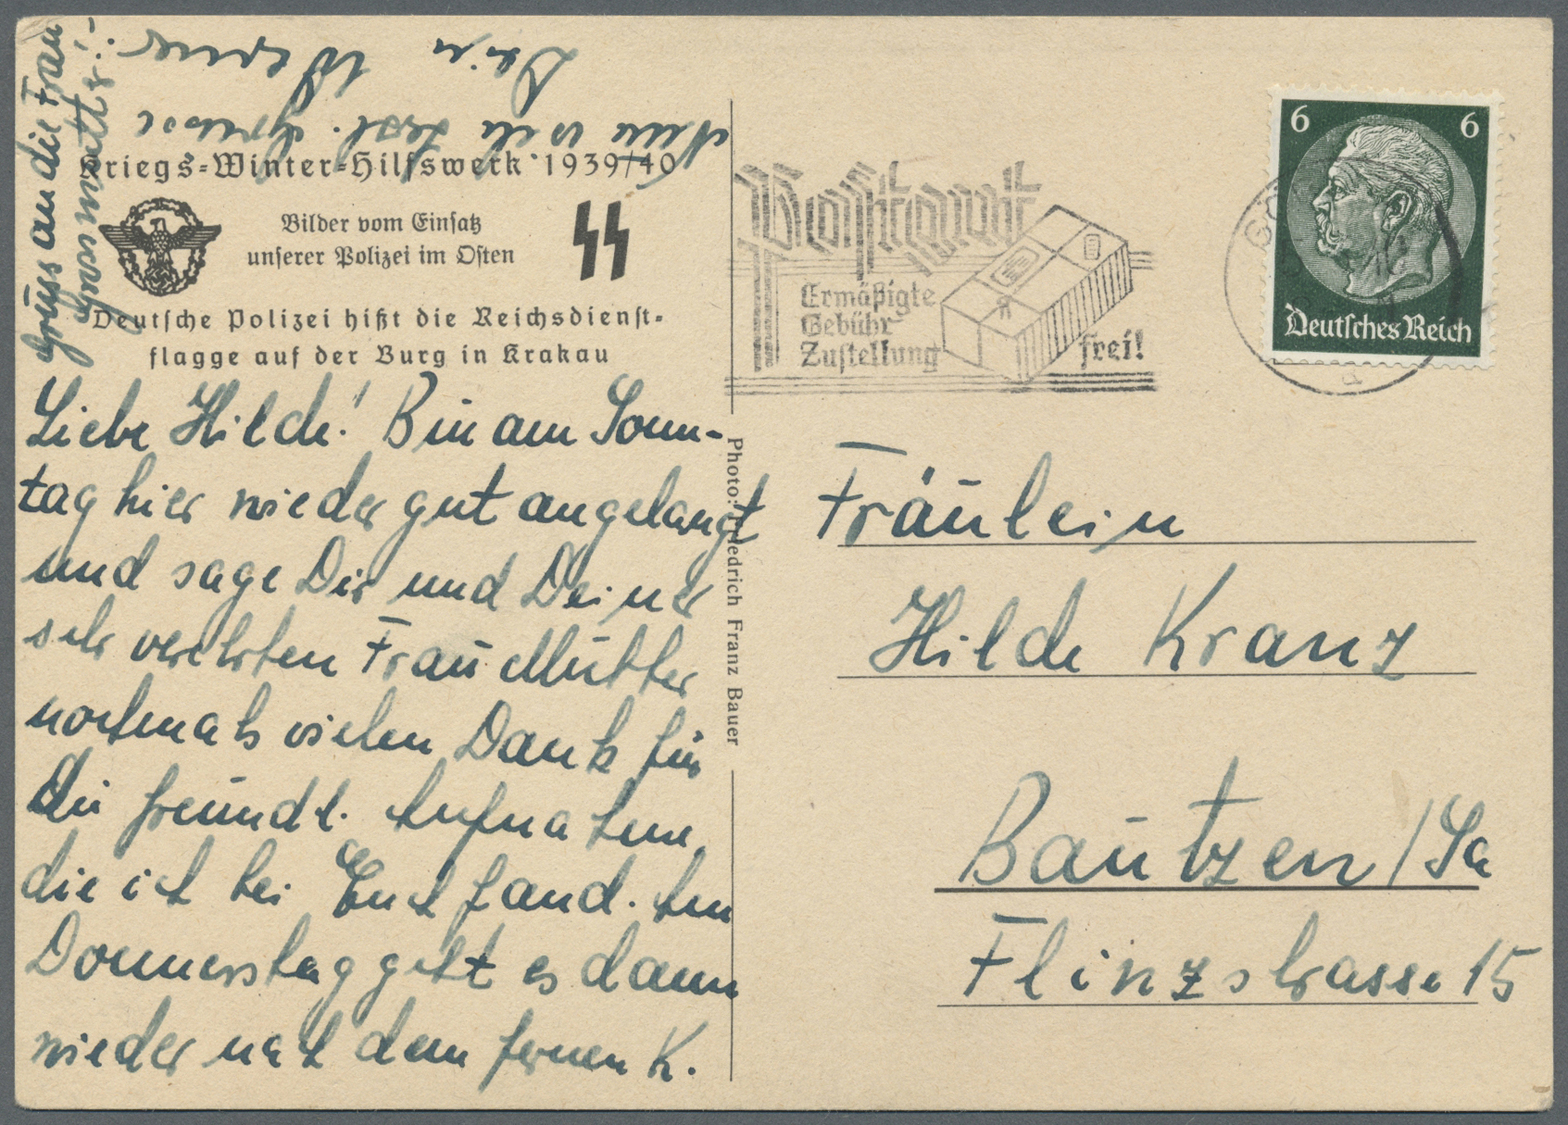 Kriegs-Winter-Hilfswerk 1939/40
Bilder vom Einsatz
unserer Polizei im Osten
Deutsche Polizei hißt die Reichsdienst-
flagge auf der Burg in Krakau
Liebe Hilde! Bin am Sonn-
tag hier wieder gut angelangt
und sage Dir und Deiner
sehr verehrten Frau Mutter
nochmals vielen Dank für
die freundl. Aufnahme,
die ich bei Euch fand. Am
Donnerstag geht es dann
wieder nach dem fernen K.
Nun sei herzl.
Dein
Gruss an die Frau
Photo: Friedrich Franz Bauer
Postamt
Ermäßigte
Gebühr
Zustellung frei!
6 6
Deutsches Reich
a
Fräulein
Hilde Kranz
Bautzen / Sa
Flinzstrasse 15